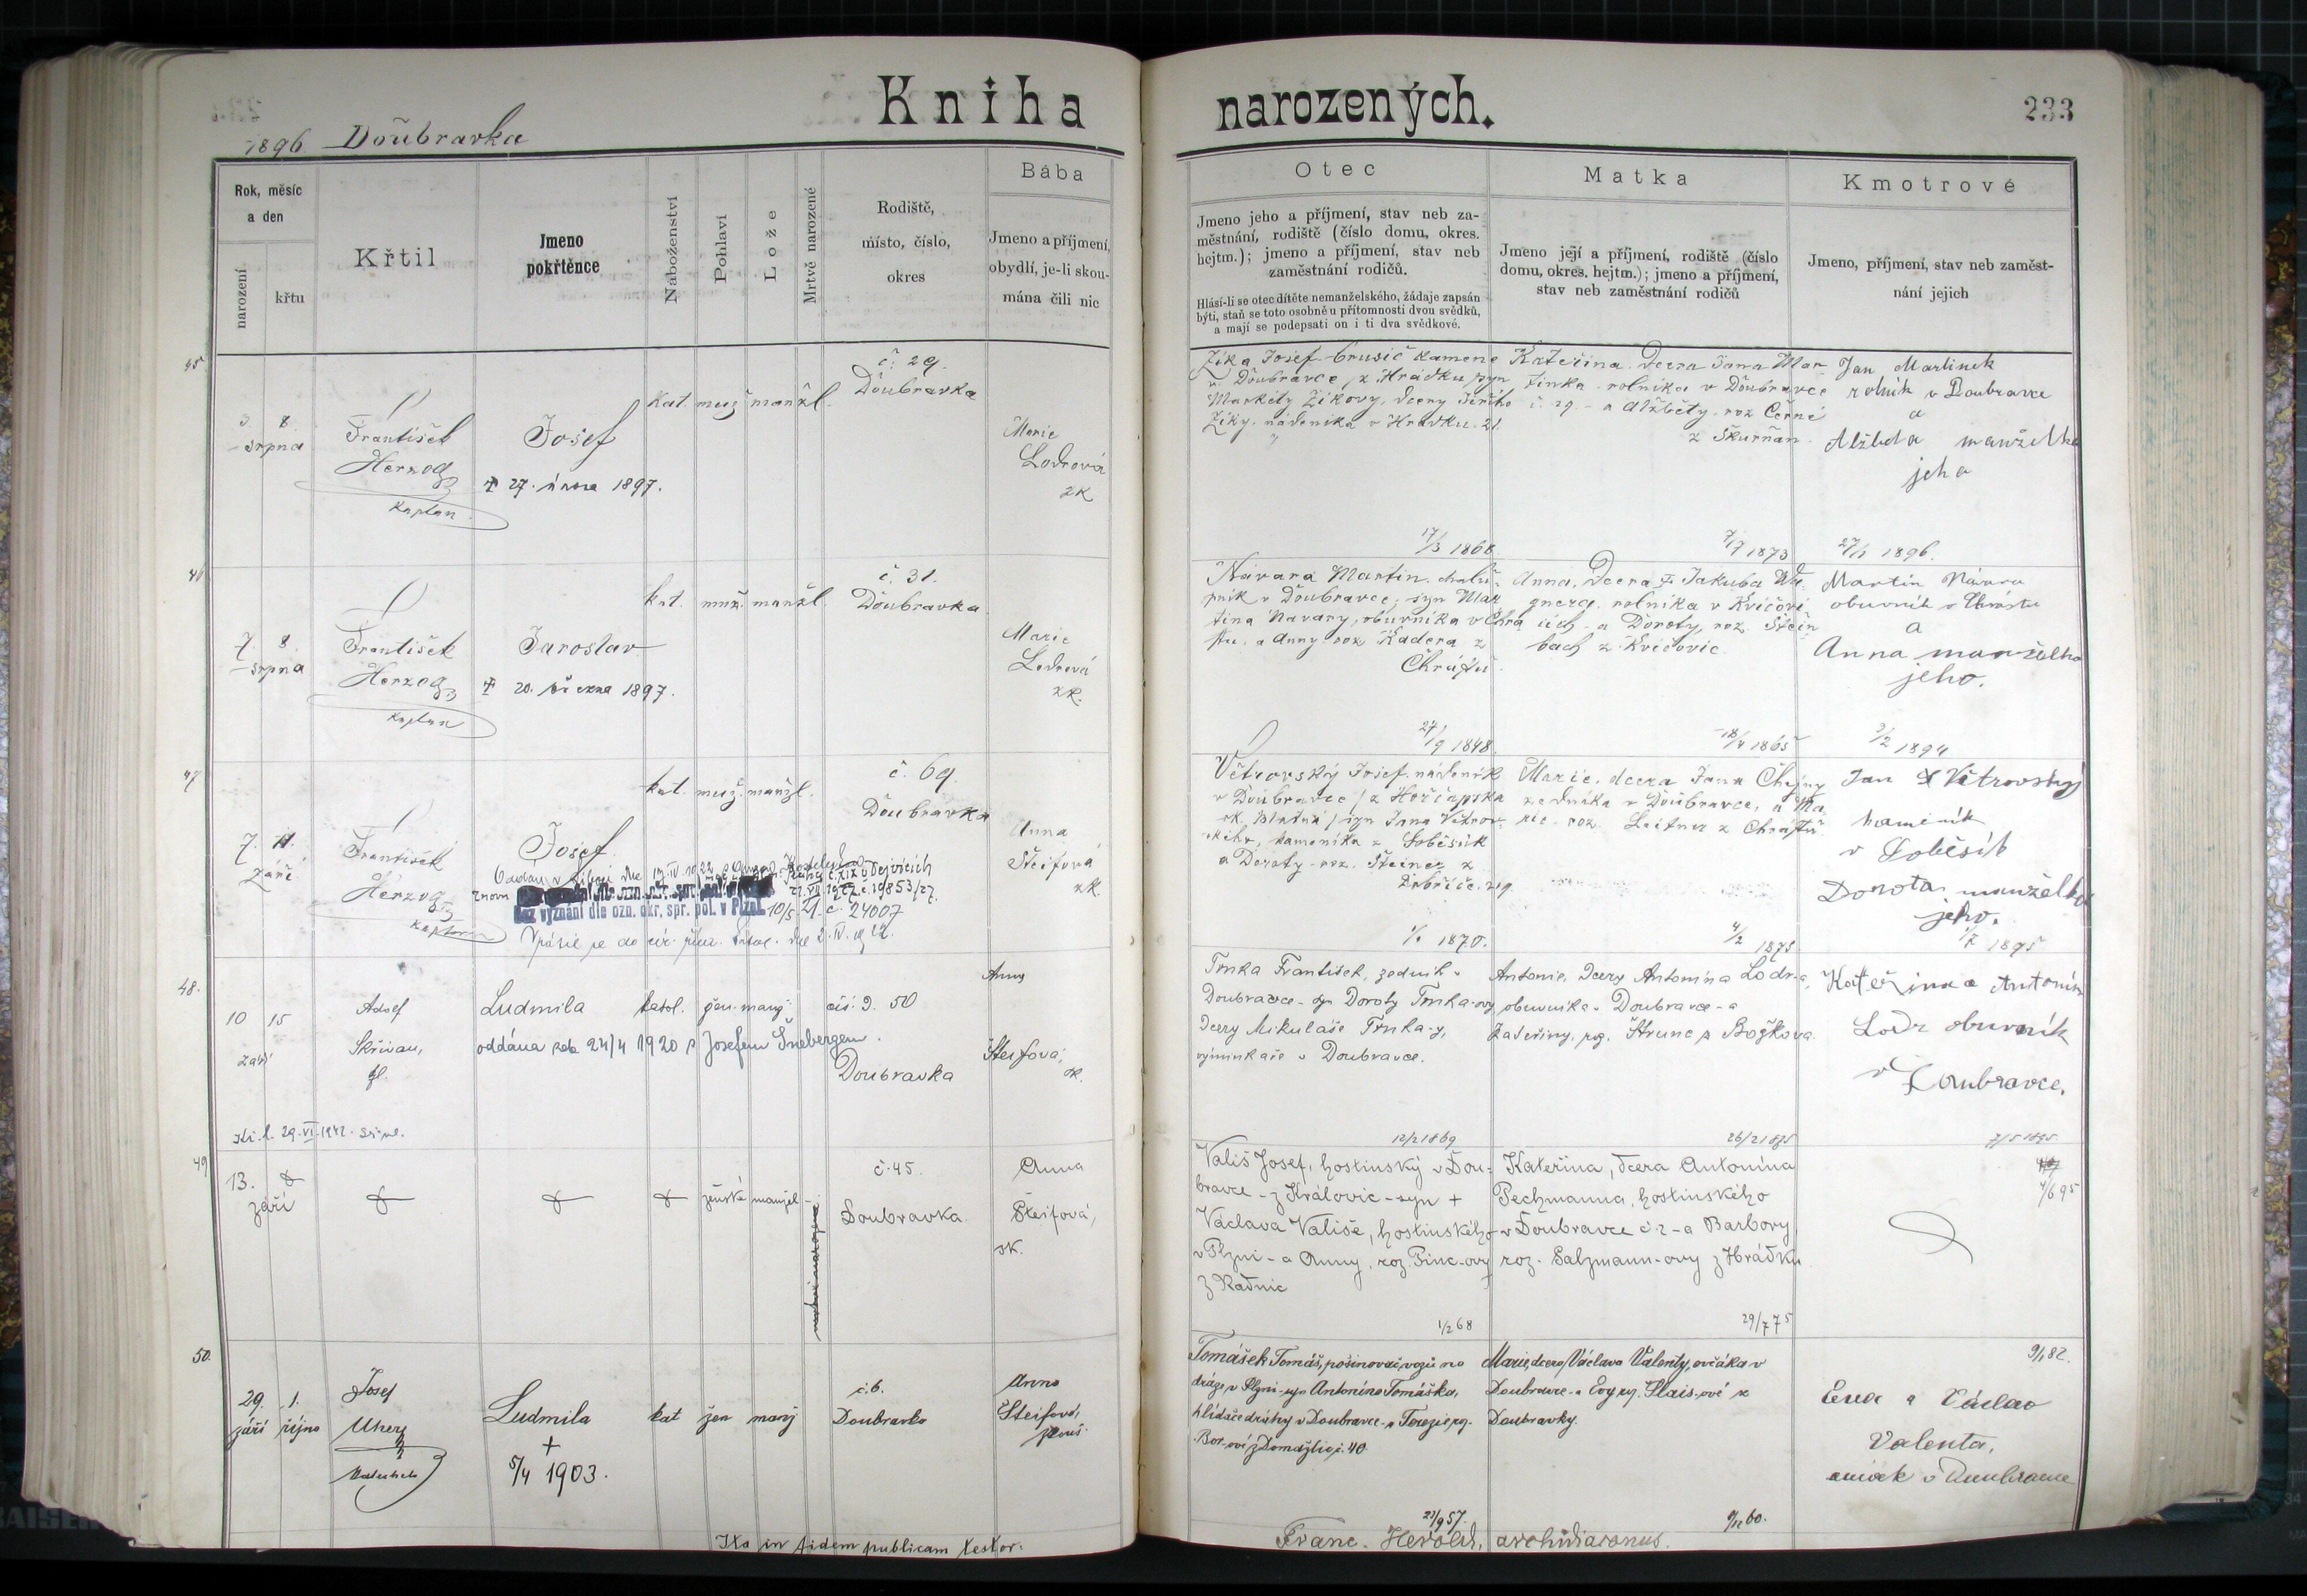 Kniha narozených.
233
1896. Doubravka
Rok, měsíc
a den
narození
křtu
Křtil
Jmeno
pokřtěnce
Náboženství
Pohlaví
Lože
Mrtvě narozené
Rodiště,
místo, číslo,
okres
Bába
Jmeno a příjmení,
obydlí, je-li skou-
mána čili nic
Otec
Jmeno jeho a příjmení, stav neb za-
městnání, rodiště (číslo domu, okres.
hejtm.); jmeno a příjmení, stav neb
zaměstnání rodičů.
Hlásí-li se otec dítěte nemanželského, žádaje zapsán
býti, staň se toto osobně u přítomnosti dvou svědků,
a mají se podepsati on i ti dva svědkové.
Matka
Jmeno její a příjmení, rodiště (číslo
domu, okres. hejtm.); jmeno a příjmení,
stav neb zaměstnání rodičů
Kmotrové
Jmeno, příjmení, stav neb zaměst-
nání jejich
45
3. 8.
srpna
František
Herzog
kaplan
Josef
27. února 1897.
kat. muž. manžl.
č. 29.
Doubravka
Marie
Lodrová
zk
Zíka Josef brusič kamene
v Doubravce, z Hrádku, syn
Markéty Zíkovy, dcery Jiřího
Zíky, nádeníka v Hrádku. 21.
17/3 1868
Kateřina, dcera Jana Mar
tínka, rolníka v Doubravce
č. 29. a Alžběty, roz Černé
z Škurňan.
7/7 1873
Jan Martinek
rolník v Doubravce
a
Alžběta manželka
jeho
27/1 1896.
46
7. 8.
srpna
František
Herzog
kaplan
Jaroslav
20. března 1897.
kat. muž. manžl.
č. 31.
Doubravka
Marie
Lodrová
zk.
Návara Martin, chalup-
pník v Doubravce, syn Mar
tina Navary, obuvníka v Chrá
stu, a Anny roz Kadera z
Chrástu.
24/9 1848.
Anna, dcera Jakuba Wa
gnera, rolníka v Kvíčovi-
cích a Doroty, roz. Stein
bach z Kvíčovic.
18/4 1865
Martin Návara
obuvník v Chrástu
a
Anna manželka
jeho.
3/2 1894
47
7. 11.
září
František
Herzog
kaplan
Josef
znova
Bez vyznání dle ozn. okr. spr. pol. v Plzni 10/5 21. č. 24007
kat. muž. manžl.
č. 69.
Doubravka
Anna
Šteifová
zk.
Větrovský Josef, nádeník
v Doubravce, z Hořčapska
ok. Blatná, syn Jana Větrov-
ského, kameníka z Loběsuk
a Doroty roz. Steiner z
29
1870.
Marie, dcera Jana Chejny
zedníka v Doubravce, a Ma
rie roz. Leitner z Chrástu.
4/2 1875
Jan Větrovský
kameník
v
Dorota manželka
jeho.
1895
48.
10 15
září
Adolf
Skřivan,
Ludmila
oddána 24/4 1920 s Josefem Šnebergem.
katol. žen. manž.
čís. d. 50
Doubravka
Anna
Šteifová,
zk.
29. VI. 1942.
Trnka František, zedník v
Doubravce - syn Doroty Trnka-ovy
dcery Mikuláše Trnka-y,
výminkáře v Doubravce.
12/2 1869
Antonie, dcery Antonína Lodr-a,
obuvníka v Doubravce - a
Kateřiny, roz. Štrunc z Božkova.
26/2 1875
Kateřina a Antonín
Lodr obuvník
v Doubravce.
7/5 1895
49
13.
září
ženské manžel
č. 45.
Doubravka.
Anna
Šteifová,
zk.
Vališ Josef, hostinský v Dou-
bravce - z Královic - syn +
Václava Vališe, hostinského
v Plzni - a Anny, roz. Finc-ovy
z Radnic
1/2 68
Kateřina, dcera Antonína
Pechmanna, hostinského
v Doubravce č. 2 - a Barbory
roz. Salzmann-ovy z Hrádku
29/7 75
4/6 95
50.
29. 1.
září října
Josef
Uherz
Ludmila
+
5/4 1903.
kat žen manž
č. 6.
Doubravka
Anna
Šteifová,
zkouš.
Tomášek Tomáš, pošinovač vozů na
dráze v Plzni - syn Antonína Tomáška,
hlídače dráhy v Doubravce - a Terezie roz.
Bor-ové z Domažlic č. 40
21/9 57.
Marie, dcera Václava Valenty, ovčáka v
Doubravce - a Evy roz. Slais-ové z
Doubravky.
9/12 60.
9/1 82.
Eva a Václav
Valenta,
ovčák v Doubravce
Ita in fidem publicam testor:
Franc. Herold, archidiaconus.